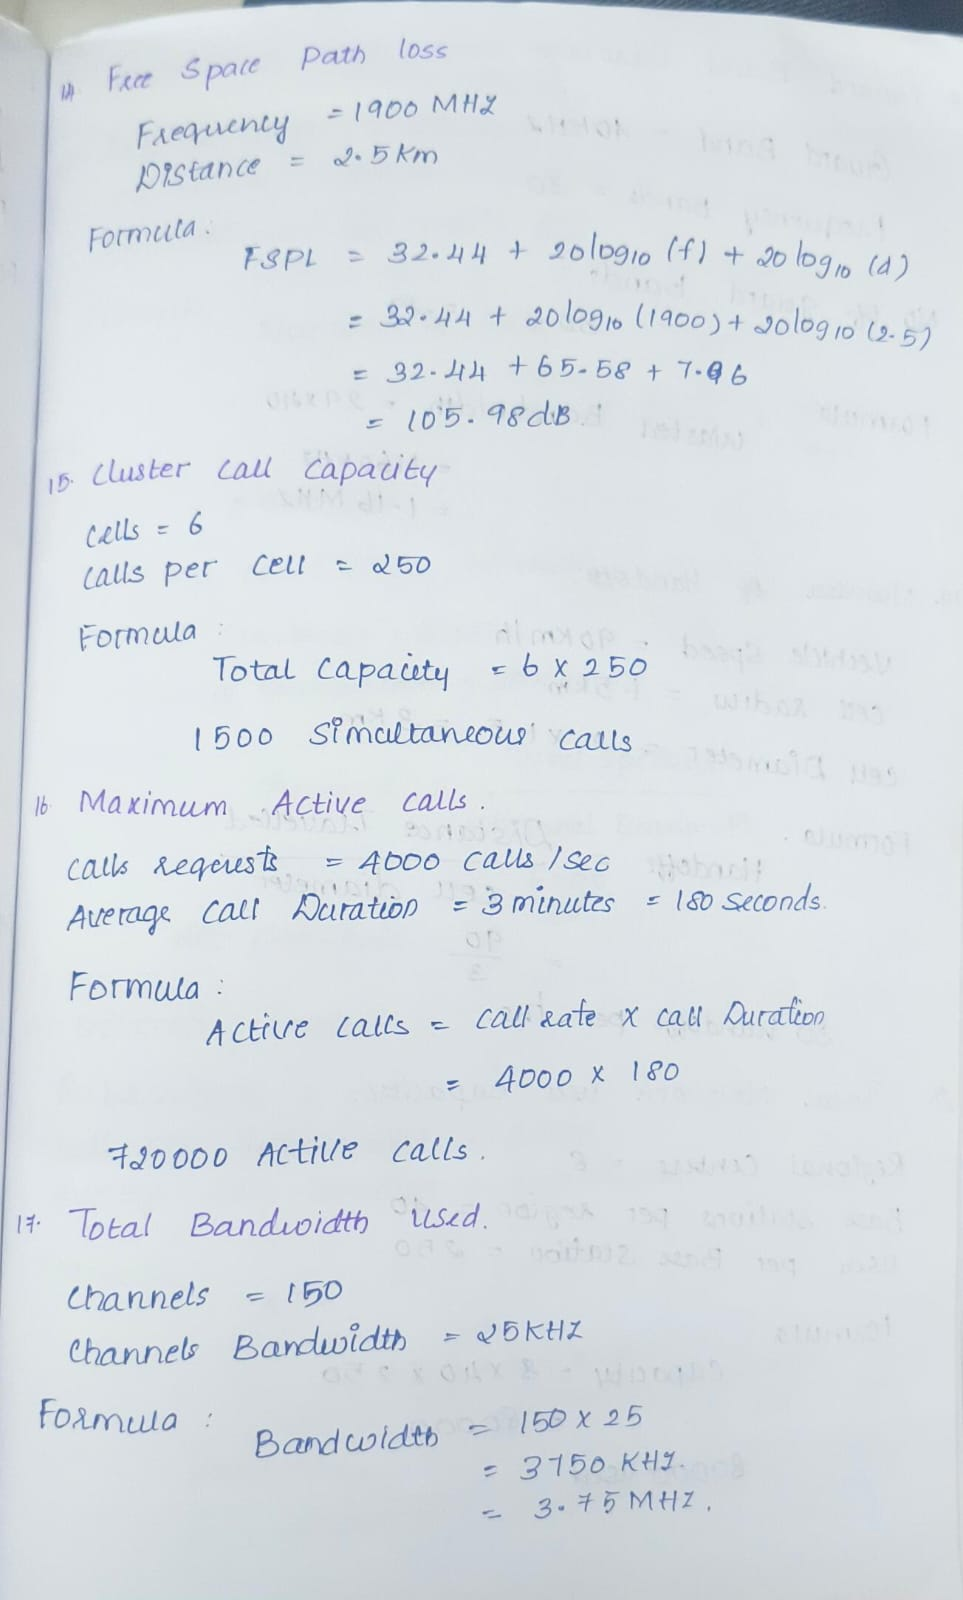 14. Free Space Path loss
Frequency = 1900 MHZ
Distance = 2.5 Km
Formula :
FSPL = 32.44 + 20 log10 (f) + 20 log10 (d)
= 32.44 + 20 log10 (1900) + 20 log10 (2.5)
= 32.44 + 65.58 + 7.96
= 105.98 dB
15. Cluster Call Capacity
Cells = 6
Calls per Cell = 250
Formula :
Total Capacity = 6 x 250
1500 Simultaneous Calls
16 Maximum Active Calls.
Calls requests = 4000 Calls / Sec
Average Call Duration = 3 minutes = 180 Seconds.
Formula :
Active Calls = Call rate x Call Duration
= 4000 x 180
720000 Active Calls.
17. Total Bandwidth Used.
Channels = 150
Channels Bandwidth = 25 KHZ
Formula :
Bandwidth = 150 x 25
= 3750 KHZ.
= 3.75 MHZ.